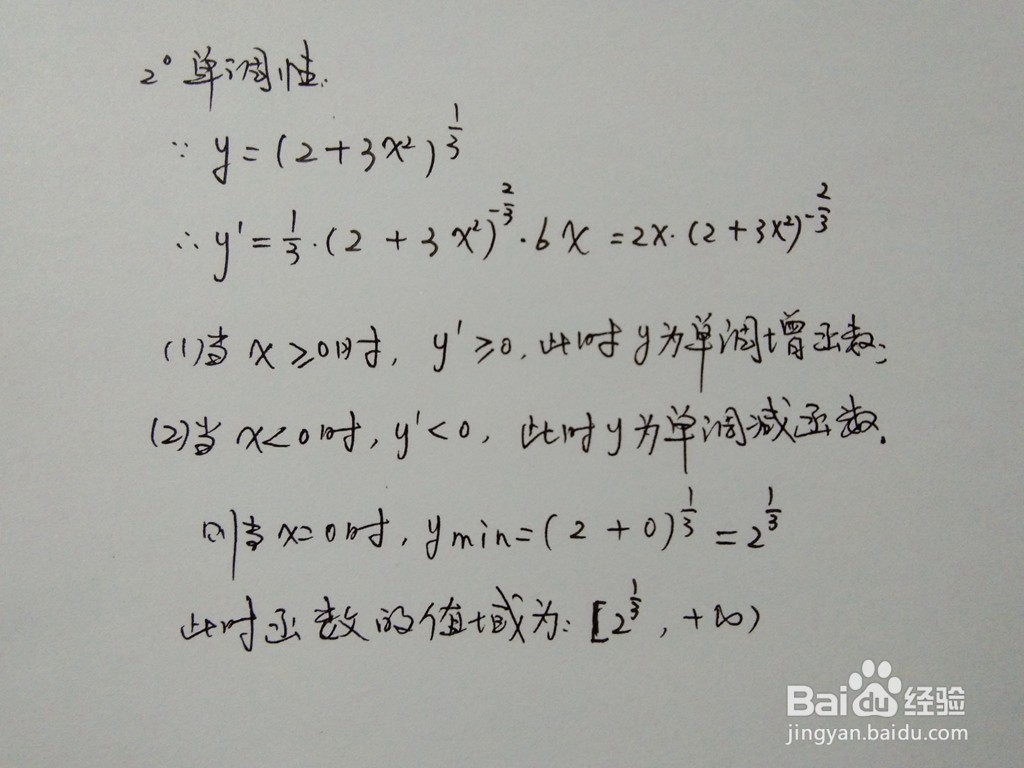 2° 单调性.
∵ y = (2+3x²)^{1/3}
∴ y' = 1/3·(2+3x²)^{-2/3}·6x = 2x·(2+3x²)^{-2/3}
(1)当 x≥0时, y'≥0, 此时y为单调增函数;
(2)当 x<0时, y'<0, 此时y为单调减函数.
则当x=0时, ymin=(2+0)^{1/3} = 2^{1/3}
此时函数的值域为: [2^{1/3}, +∞)
Baidu经验
jingyan.baidu.com